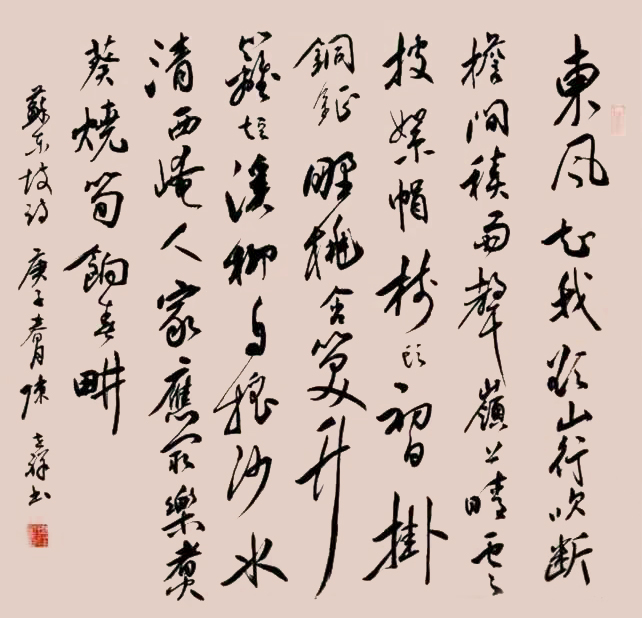 東風知我欲山行吹断
檐間積雨聲嶺上晴雲
披絮帽樹頭初日掛
銅鉦野桃含笑竹
籬短溪柳自摇沙水
清西崦人家應最樂煮
葵燒筍餉春畊
蘇东坡詩 庚子春月陳祥书